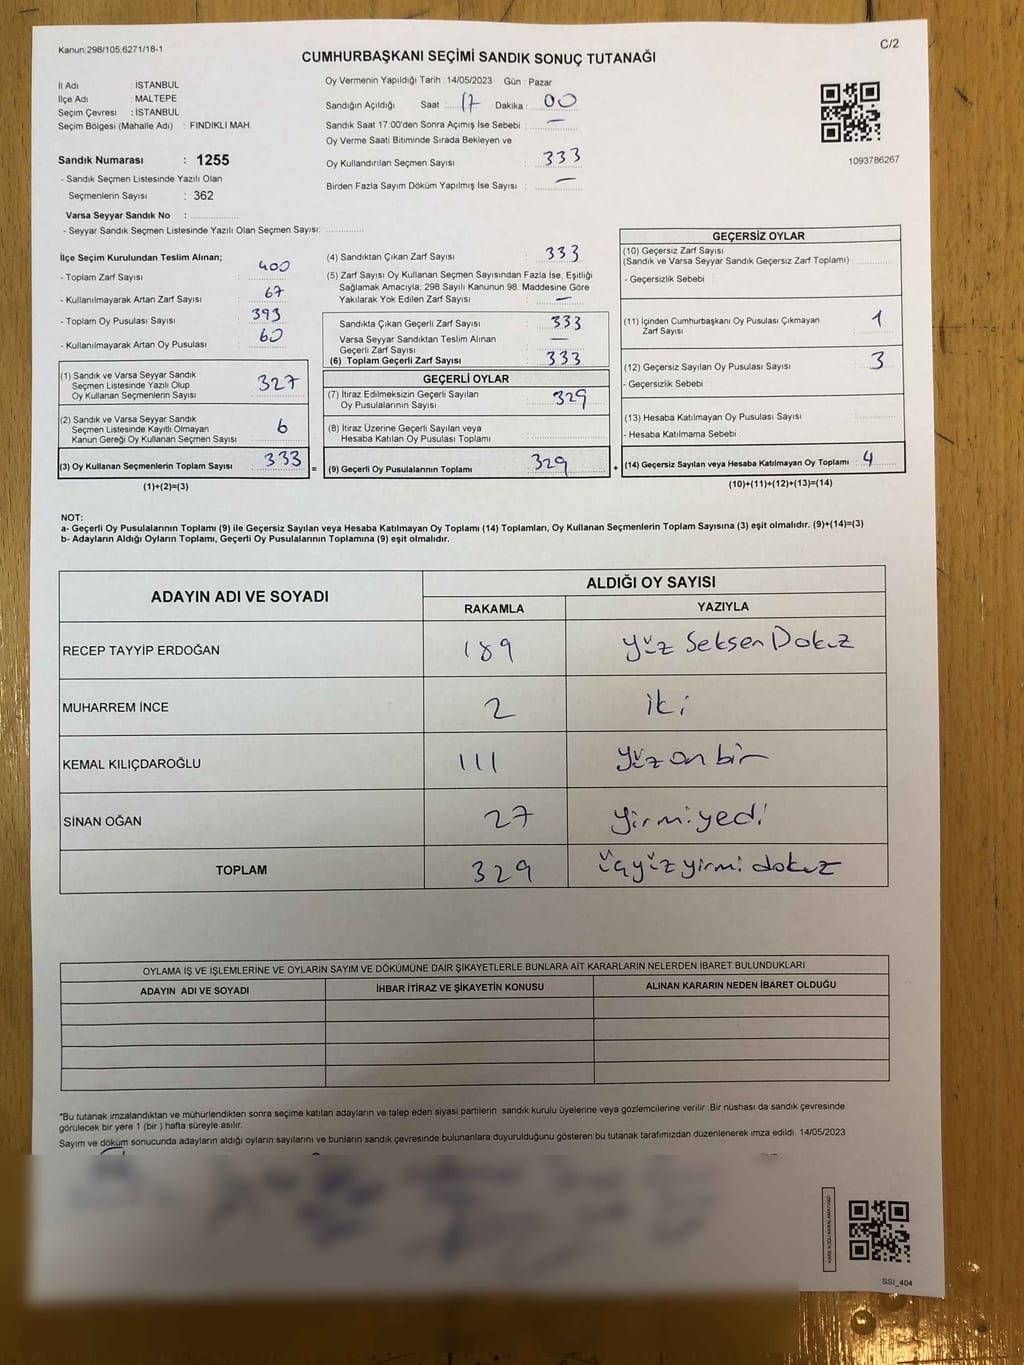 Kanun:298/105,6271/18-1
C/2
CUMHURBAŞKANI SEÇİMİ SANDIK SONUÇ TUTANAĞI
İl Adı : İSTANBUL
İlçe Adı : MALTEPE
Seçim Çevresi : İSTANBUL
Seçim Bölgesi (Mahalle Adı) : FINDIKLI MAH.
Sandık Numarası : 1255
- Sandık Seçmen Listesinde Yazılı Olan
Seçmenlerin Sayısı : 362
Varsa Seyyar Sandık No :
- Seyyar Sandık Seçmen Listesinde Yazılı Olan Seçmen Sayısı:
Oy Vermenin Yapıldığı Tarih : 14/05/2023 Gün : Pazar
Sandığın Açıldığı Saat : 17 Dakika : 00
Sandık Saat 17:00'den Sonra Açımış İse Sebebi : —
Oy Verme Saati Bitiminde Sırada Bekleyen ve
Oy Kullandırılan Seçmen Sayısı : 333
Birden Fazla Sayım Döküm Yapılmış İse Sayısı : —
1093786267
İlçe Seçim Kurulundan Teslim Alınan;
- Toplam Zarf Sayısı : 400
- Kullanılmayarak Artan Zarf Sayısı : 67
- Toplam Oy Pusulası Sayısı : 393
- Kullanılmayarak Artan Oy Pusulası : 60
(1) Sandık ve Varsa Seyyar Sandık
Seçmen Listesinde Yazılı Olup
Oy Kullanan Seçmenlerin Sayısı : 327
(2) Sandık ve Varsa Seyyar Sandık
Seçmen Listesinde Kayıtlı Olmayan
Kanun Gereği Oy Kullanan Seçmen Sayısı : 6
(3) Oy Kullanan Seçmenlerin Toplam Sayısı : 333
(1)+(2)=(3)
(4) Sandıktan Çıkan Zarf Sayısı : 333
(5) Zarf Sayısı Oy Kullanan Seçmen Sayısından Fazla İse, Eşitliği
Sağlamak Amacıyla; 298 Sayılı Kanunun 98. Maddesine Göre
Yakılarak Yok Edilen Zarf Sayısı : —
Sandıkta Çıkan Geçerli Zarf Sayısı : 333
Varsa Seyyar Sandıktan Teslim Alınan
Geçerli Zarf Sayısı : —
(6) Toplam Geçerli Zarf Sayısı : 333
GEÇERLİ OYLAR
(7) İtiraz Edilmeksizin Geçerli Sayılan
Oy Pusulalarının Sayısı : 329
(8) İtiraz Üzerine Geçerli Sayılan veya
Hesaba Katılan Oy Pusulası Toplamı :
= (9) Geçerli Oy Pusulalarının Toplamı : 329
GEÇERSİZ OYLAR
(10) Geçersiz Zarf Sayısı
(Sandık ve Varsa Seyyar Sandık Geçersiz Zarf Toplamı) :
- Geçersizlik Sebebi :
(11) İçinden Cumhurbaşkanı Oy Pusulası Çıkmayan
Zarf Sayısı : 1
(12) Geçersiz Sayılan Oy Pusulası Sayısı : 3
- Geçersizlik Sebebi :
(13) Hesaba Katılmayan Oy Pusulası Sayısı :
- Hesaba Katılmama Sebebi :
+ (14) Geçersiz Sayılan veya Hesaba Katılmayan Oy Toplamı : 4
(10)+(11)+(12)+(13)=(14)
NOT:
a- Geçerli Oy Pusulalarının Toplamı (9) ile Geçersiz Sayılan veya Hesaba Katılmayan Oy Toplamı (14) Toplamları, Oy Kullanan Seçmenlerin Toplam Sayısına (3) eşit olmalıdır. (9)+(14)=(3)
b- Adayların Aldığı Oyların Toplamı, Geçerli Oy Pusulalarının Toplamına (9) eşit olmalıdır.
ADAYIN ADI VE SOYADI
ALDIĞI OY SAYISI
RAKAMLA YAZIYLA
RECEP TAYYİP ERDOĞAN 189 yüz Seksen Dokuz
MUHARREM İNCE 2 iki
KEMAL KILIÇDAROĞLU 111 yüz on bir
SİNAN OĞAN 27 yirmi yedi
TOPLAM 329 üçyüz yirmi dokuz
OYLAMA İŞ VE İŞLEMLERİNE VE OYLARIN SAYIM VE DÖKÜMÜNE DAİR ŞİKAYETLERLE BUNLARA AİT KARARLARIN NELERDEN İBARET BULUNDUKLARI
ADAYIN ADI VE SOYADI İHBAR İTİRAZ VE ŞİKAYETİN KONUSU ALINAN KARARIN NEDEN İBARET OLDUĞU
*Bu tutanak imzalandıktan ve mühürlendikten sonra seçime katılan adayların ve talep eden siyasi partilerin sandık kurulu üyelerine veya gözlemcilerine verilir .Bir nüshası da sandık çevresinde
görülecek bir yere 1 (bir ) hafta süreyle asılır.
Sayım ve döküm sonucunda adayların aldığı oyların sayılarını ve bunların sandık çevresinde bulunanlara duyurulduğunu gösteren bu tutanak tarafımızdan düzenlenerek imza edildi. 14/05/2023
KARE KODU KARALAMAYINIZ!
SSI_404